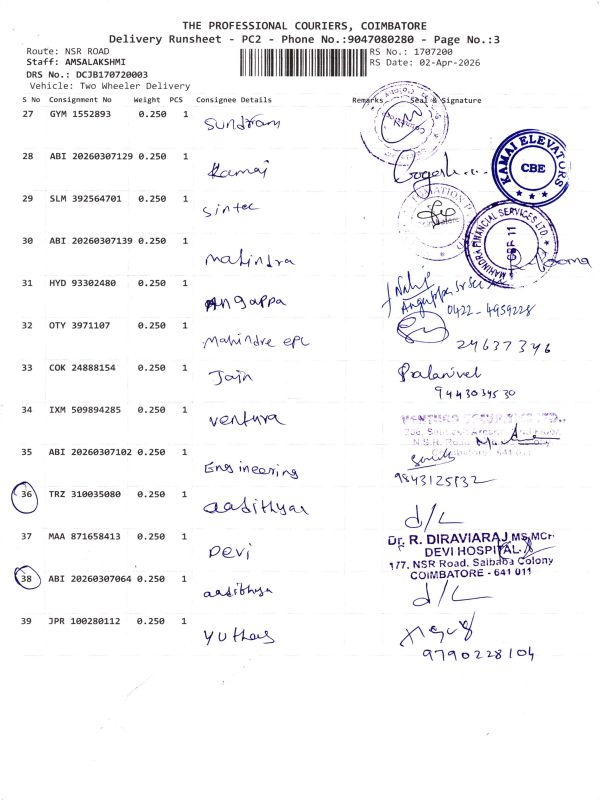 THE PROFESSIONAL COURIERS, COIMBATORE
Delivery Runsheet - PC2 - Phone No.:9047080280 - Page No.:3
Route: NSR ROAD
RS No.: 1707200
Staff: AMSALAKSHMI
RS Date: 02-Apr-2026
DRS No.: DCJB170720003
Vehicle: Two Wheeler Delivery
S No Consignment No Weight PCS Consignee Details Remarks Seal & Signature
27 GYM 1552893 0.250 1
Sundram
28 ABI 20260307129 0.250 1
Kamai
KAMAI ELEVATORS
CBE
29 SLM 392564701 0.250 1
Sintec
30 ABI 20260307139 0.250 1
Mahindra
MAHINDRA FINANCIAL SERVICES LTD
31 HYD 93302480 0.250 1
Angappa
0422-4959228
32 OTY 3971107 0.250 1
Mahindre epc
24637346
33 COK 24888154 0.250 1
Jain
Palanivel
9443034530
34 IXM 509894285 0.250 1
Ventura
N.S.R. Road
35 ABI 20260307102 0.250 1
Engineering
9843125832
36 TRZ 310035080 0.250 1
aadithyar
d/L
37 MAA 871658413 0.250 1
Devi
Dr. R. DIRAVIARAJ MS, MCh
DEVI HOSPITAL
177, NSR Road, Saibaba Colony
COIMBATORE - 641 011
38 ABI 20260307064 0.250 1
aadithya
d/L
39 JPR 100280112 0.250 1
Yuthas
9790228104